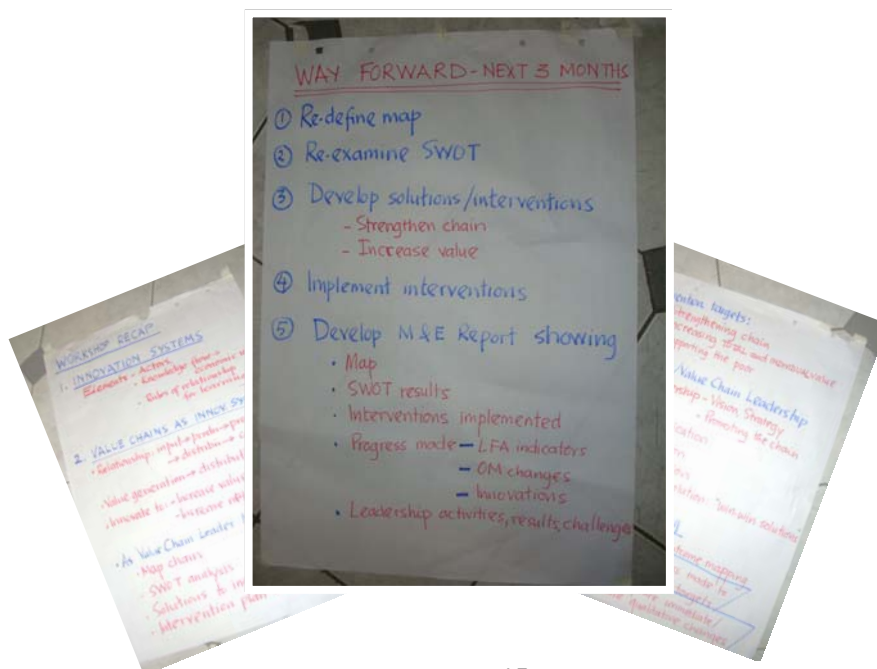 WAY FORWARD - NEXT 3 MONTHS
① Re-define map
② Re-examine SWOT
③ Develop solutions/interventions
- Strengthen chain
- Increase value
④ Implement interventions
⑤ Develop M&E Report showing
• Map
• SWOT results
• Interventions implemented
• Progress made - LFA indicators
- OM changes
- Innovations
• Leadership activities, results, challenges
WORKSHOP RECAP
1. INNOVATION SYSTEMS
Elements - Actors
• Knowledge flow
• Rules of relationship
2. VALUE CHAINS AS INNOV. SY
• Relationship: input → produ → pro
→ distrib →
• Value generation → distribut
• Innovate to: - Increase value
- Increase
• As Value Chain Leader
• Map chain
• SWOT analysis
• Solutions to
• Intervention plan
targets:
Strengthening chain
total and value
the poor
Value Chain Leadership
- Vision, Strategy
- Promoting the chain
"win win solutions"
mapping
made to
targets
immediate/
qualitative changes